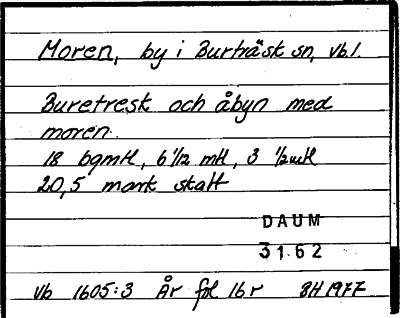 Moren, by i Burträsk sn, vb.l.
Buretresk och åbyn med
moren.
18 bgmtl, 6 1/2 mtl, 3 1/2 mtl
20,5 mark skatt
DAUM
3162
Vb 1605:3 År fol 16r BH 1977